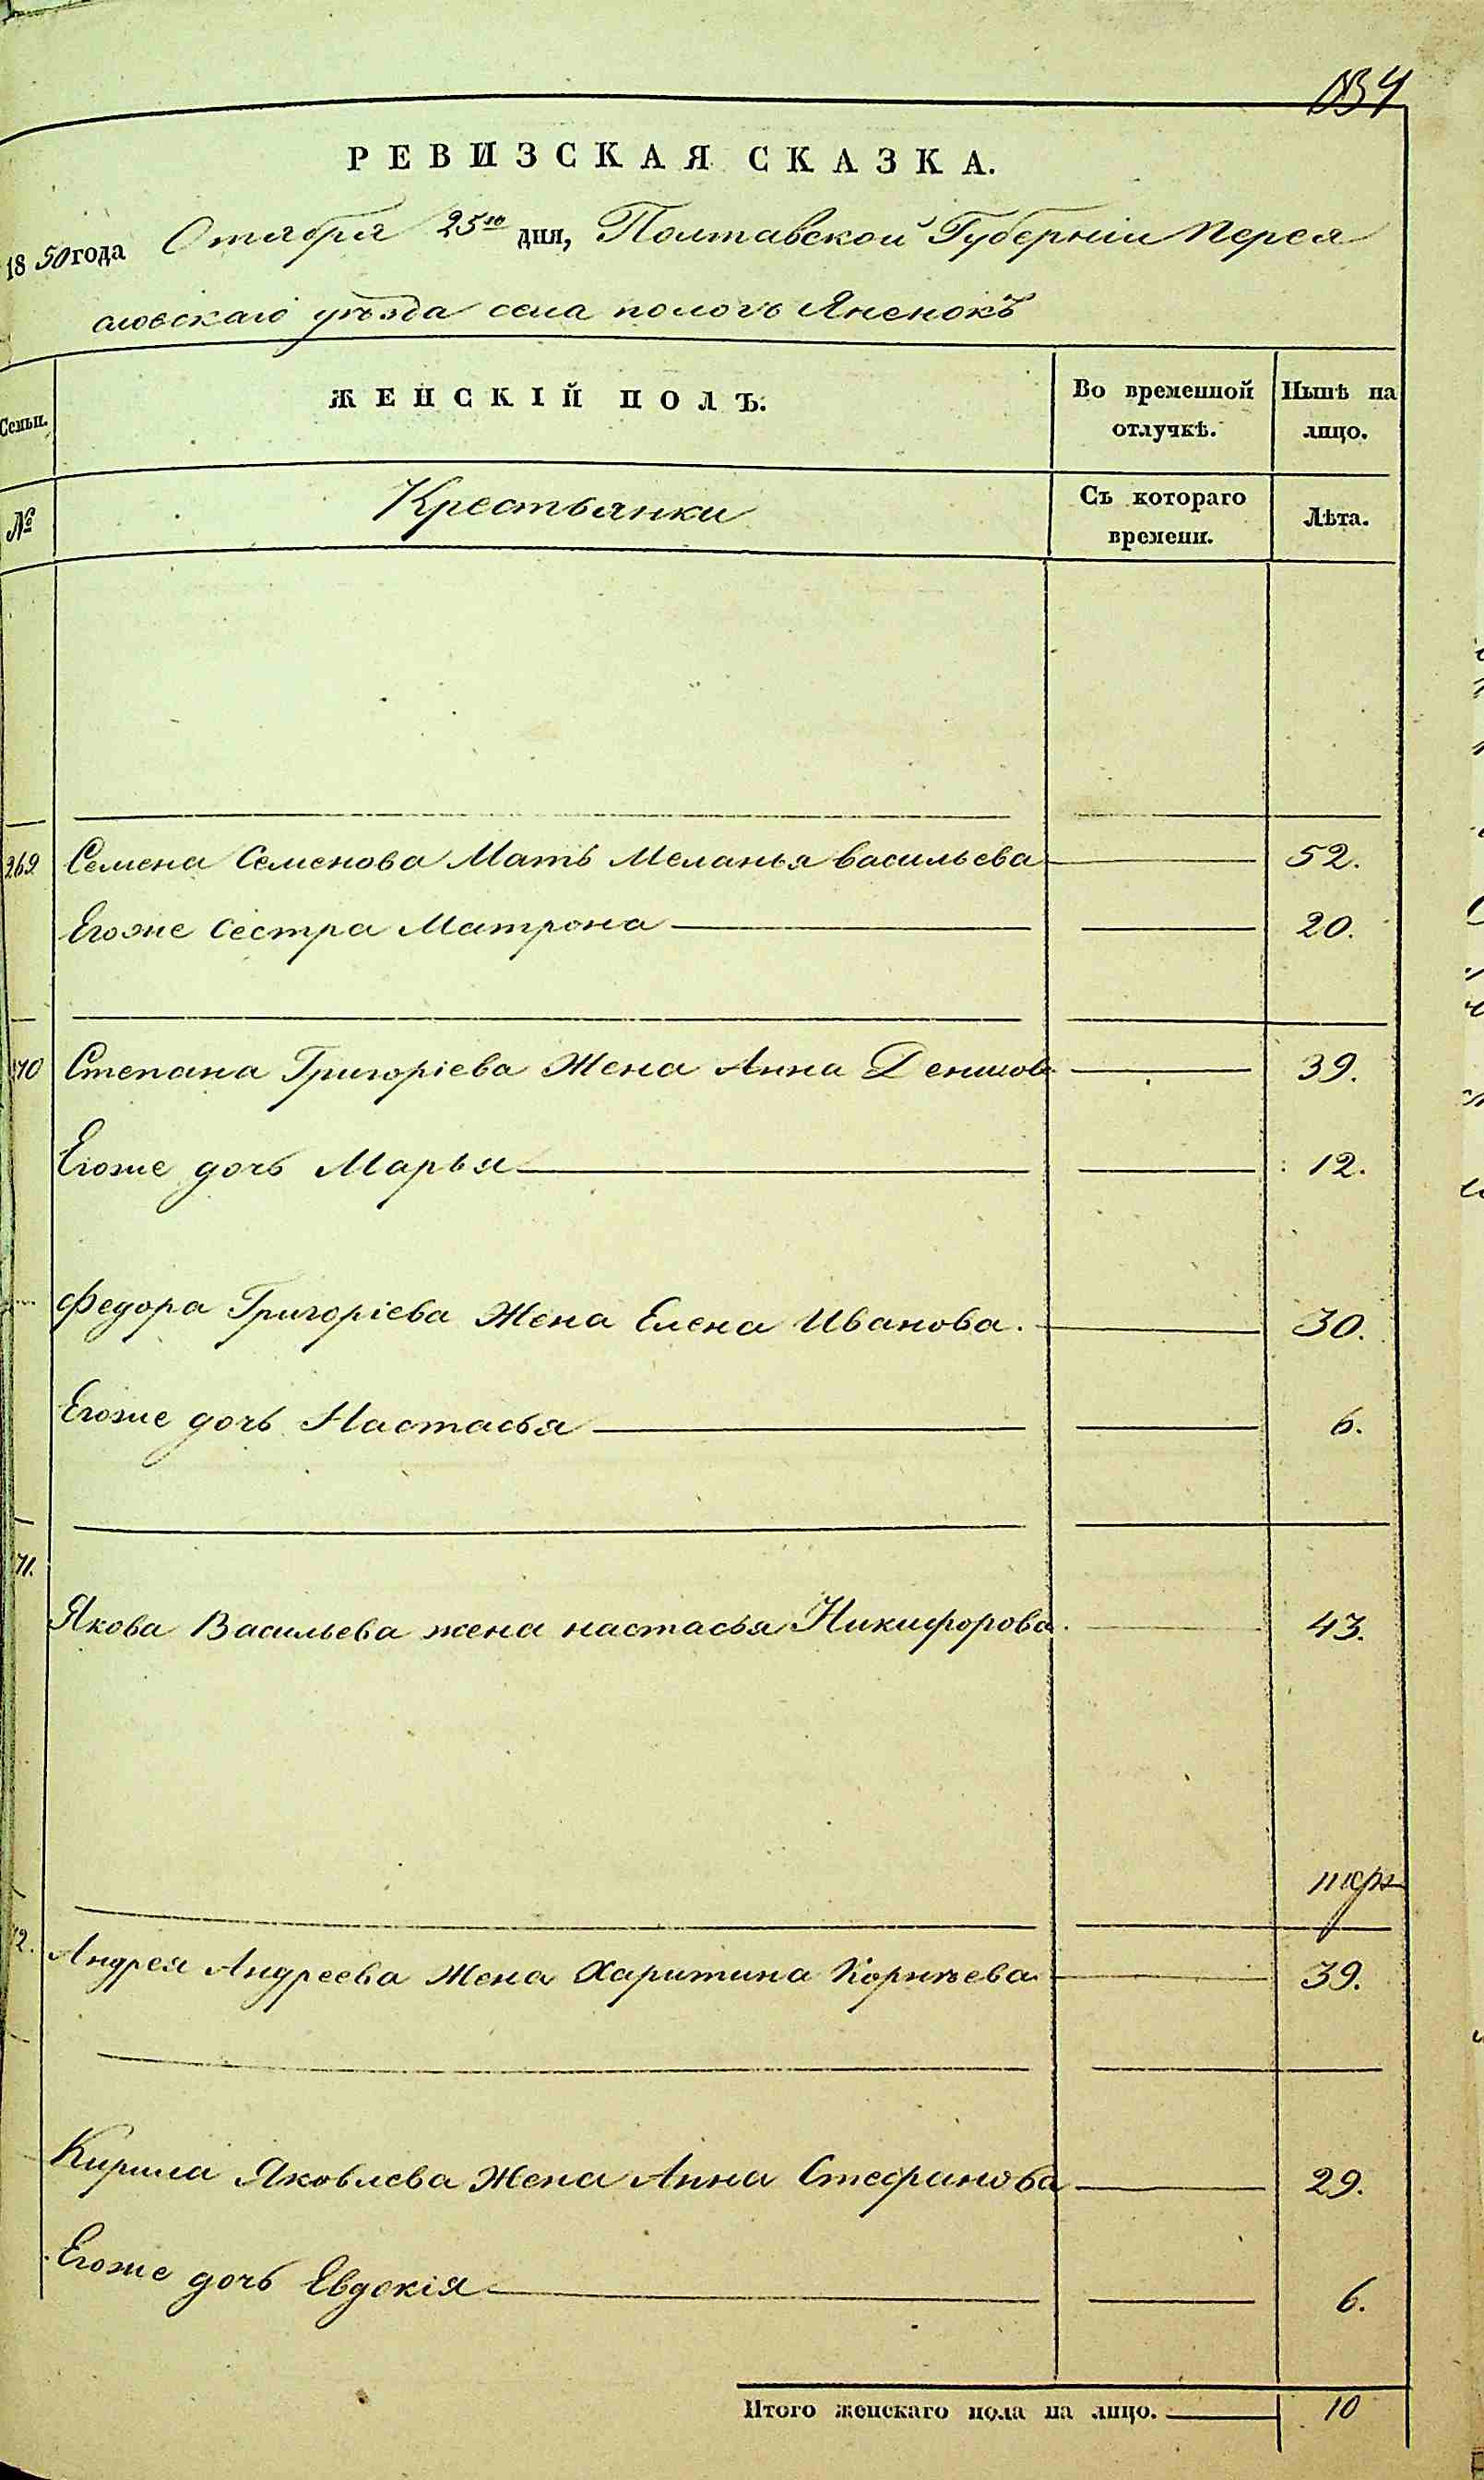 РЕВИЗСКАЯ СКАЗКА.
1850 года Октября 25го дня, Полтавской Губерніи Перея
словскаго уѣзда села пологъ Яненокъ
Семьи.
ЖЕНСКІЙ ПОЛЪ.
Во временной отлучкѣ.
Нынѣ на лицо.
№
Крестьянки
Съ котораго времени.
Лѣта.
269 Семена Семенова Мать Меланья васильева 52.
Егоже Сестра Матрона 20.
70 Степана Григоріева Жена Анна Денисов 39.
Егоже дочь Марья 12.
Федора Григоріева Жена Елена Иванова. 30.
Егоже дочь Настасья 6.
71.
Якова Васильева жена настасья Никифорова. 43.
2. Андрея Андреева Жена Харитина Корнѣева 39.
Кирила Яковлева Жена Анна Стефанова 29.
Егоже дочь Евдокія 6.
Итого женскаго пола на лицо. 10